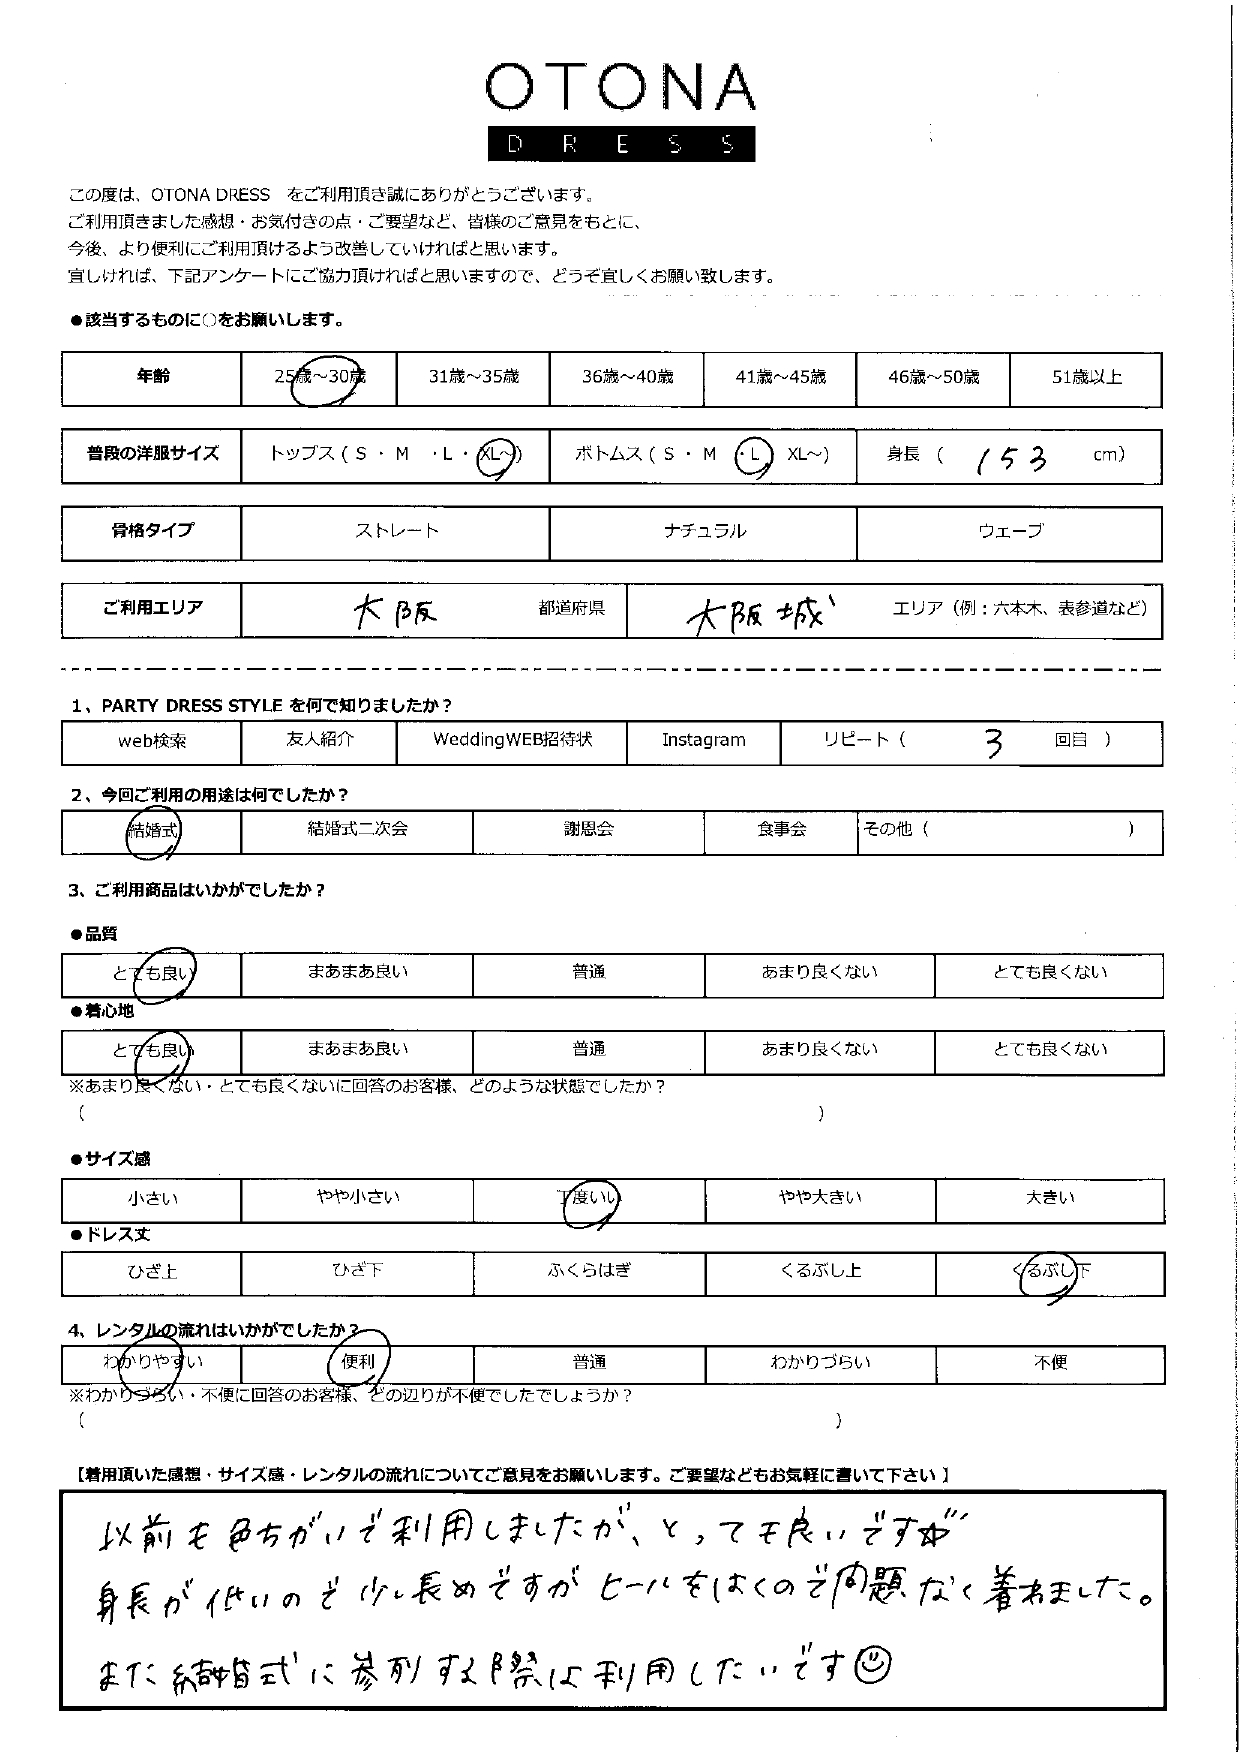 OTONA
DRESS
この度は、OTONA DRESS　をご利用頂き誠にありがとうございます。
ご利用頂きました感想・お気付きの点・ご要望など、皆様のご意見をもとに、
今後、より便利にご利用頂けるよう改善していければと思います。
宜しければ、下記アンケートにご協力頂ければと思いますので、どうぞ宜しくお願い致します。
●該当するものに○をお願いします。
年齢 25歳～30歳 31歳～35歳 36歳～40歳 41歳～45歳 46歳～50歳 51歳以上
普段の洋服サイズ トップス（ S ・ M ・L ・ XL～） ボトムス（ S ・ M ・L XL～) 身長（ 153 cm）
骨格タイプ ストレート ナチュラル ウェーブ
ご利用エリア 大阪 都道府県 大阪城 エリア（例：六本木、表参道など）
1、PARTY DRESS STYLE を何で知りましたか？
web検索 友人紹介 WeddingWEB招待状 Instagram リピート（ 3 回目 ）
2、今回ご利用の用途は何でしたか？
結婚式 結婚式二次会 謝恩会 食事会 その他（ ）
3、ご利用商品はいかがでしたか？
●品質
とても良い まあまあ良い 普通 あまり良くない とても良くない
●着心地
とても良い まあまあ良い 普通 あまり良くない とても良くない
※あまり良くない・とても良くないに回答のお客様、どのような状態でしたか？
（ ）
●サイズ感
小さい やや小さい 丁度いい やや大きい 大きい
●ドレス丈
ひざ上 ひざ下 ふくらはぎ くるぶし上 くるぶし下
4、レンタルの流れはいかがでしたか？
わかりやすい 便利 普通 わかりづらい 不便
※わかりづらい・不便に回答のお客様、どの辺りが不便でしたでしょうか？
（ ）
【着用頂いた感想・サイズ感・レンタルの流れについてご意見をお願いします。ご要望などもお気軽に書いて下さい】
以前も色ちがいで利用しましたが、とっても良いです☆
身長が低いので少し長めですがヒールをはくので問題なく着れました。
また結婚式に参列する際は利用したいです☺